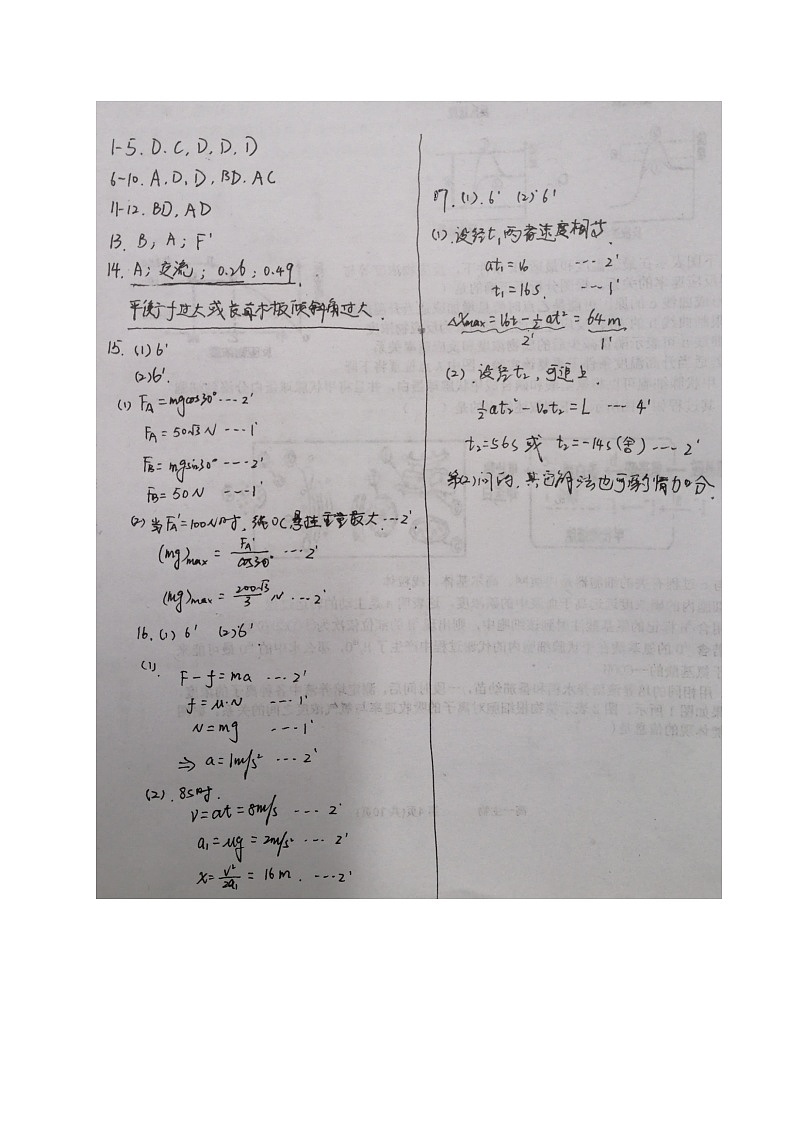 1-5. D. C, D, D, D
6-10. A, D, D, BD. AC
11-12. BD, AD
13. B; A; F'
14. A; 交流; 0.26; 0.49.
平衡f过大或长木板倾斜角过大.
15. (1) 6'
(2) 6'.
(1) F_A = mgcos30° --- 2'
F_A = 50√3 N --- 1'
F_B = mgsin30° --- 2'
F_B = 50N --- 1'
(2) 当F_A'=100N时. 绳OC悬挂重量最大 --- 2'.
(mg)max = F_A'/cos30° --- 2'
(mg)max = 200√3/3 N --- 2'
16. (1) 6' (2) 6'
(1).
F - f = ma --- 2'
f = μ·N --- 1'
N = mg --- 1'
⇒ a = 1m/s² --- 2'
(2). 8s时.
v = at = 8m/s --- 2'
a₁ = μg = 2m/s² --- 2'
x = v²/2a₁ = 16m. --- 2'
17. (1). 6' (2) 6'
(1). 设经t₁两者速度相等.
at₁ = 16 --- 2'
t₁ = 16s. --- 1'
Δxmax = 16t - ½at² = 64m
2' 1'
(2). 设经t₂, 可追上.
½at₂² - v₀t₂ = L --- 4'
t₂=56s 或 t₂=-14s(舍) --- 2'
第(2)问的, 其它解法也可酌情加分.